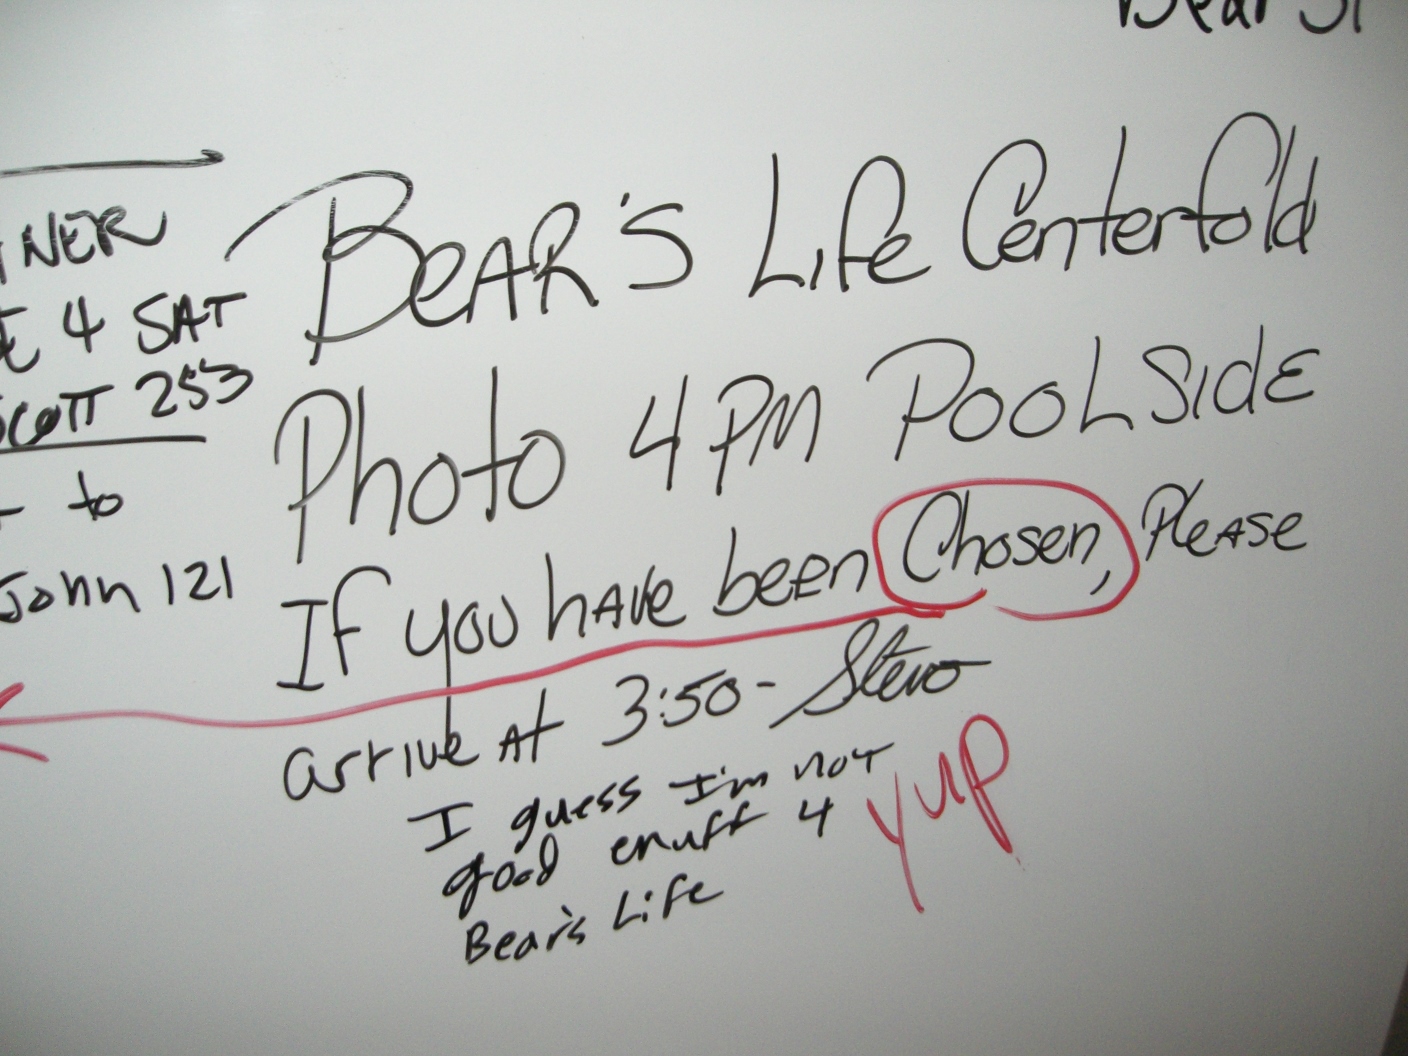 4 SAT
253
to
John 121
BEAR'S Life Centerfold
Photo 4 PM POOLSIDE
If you have been Chosen, Please
arrive At 3:50 - Stevo
I guess I'm not
good enuff 4
Bear's Life
yup